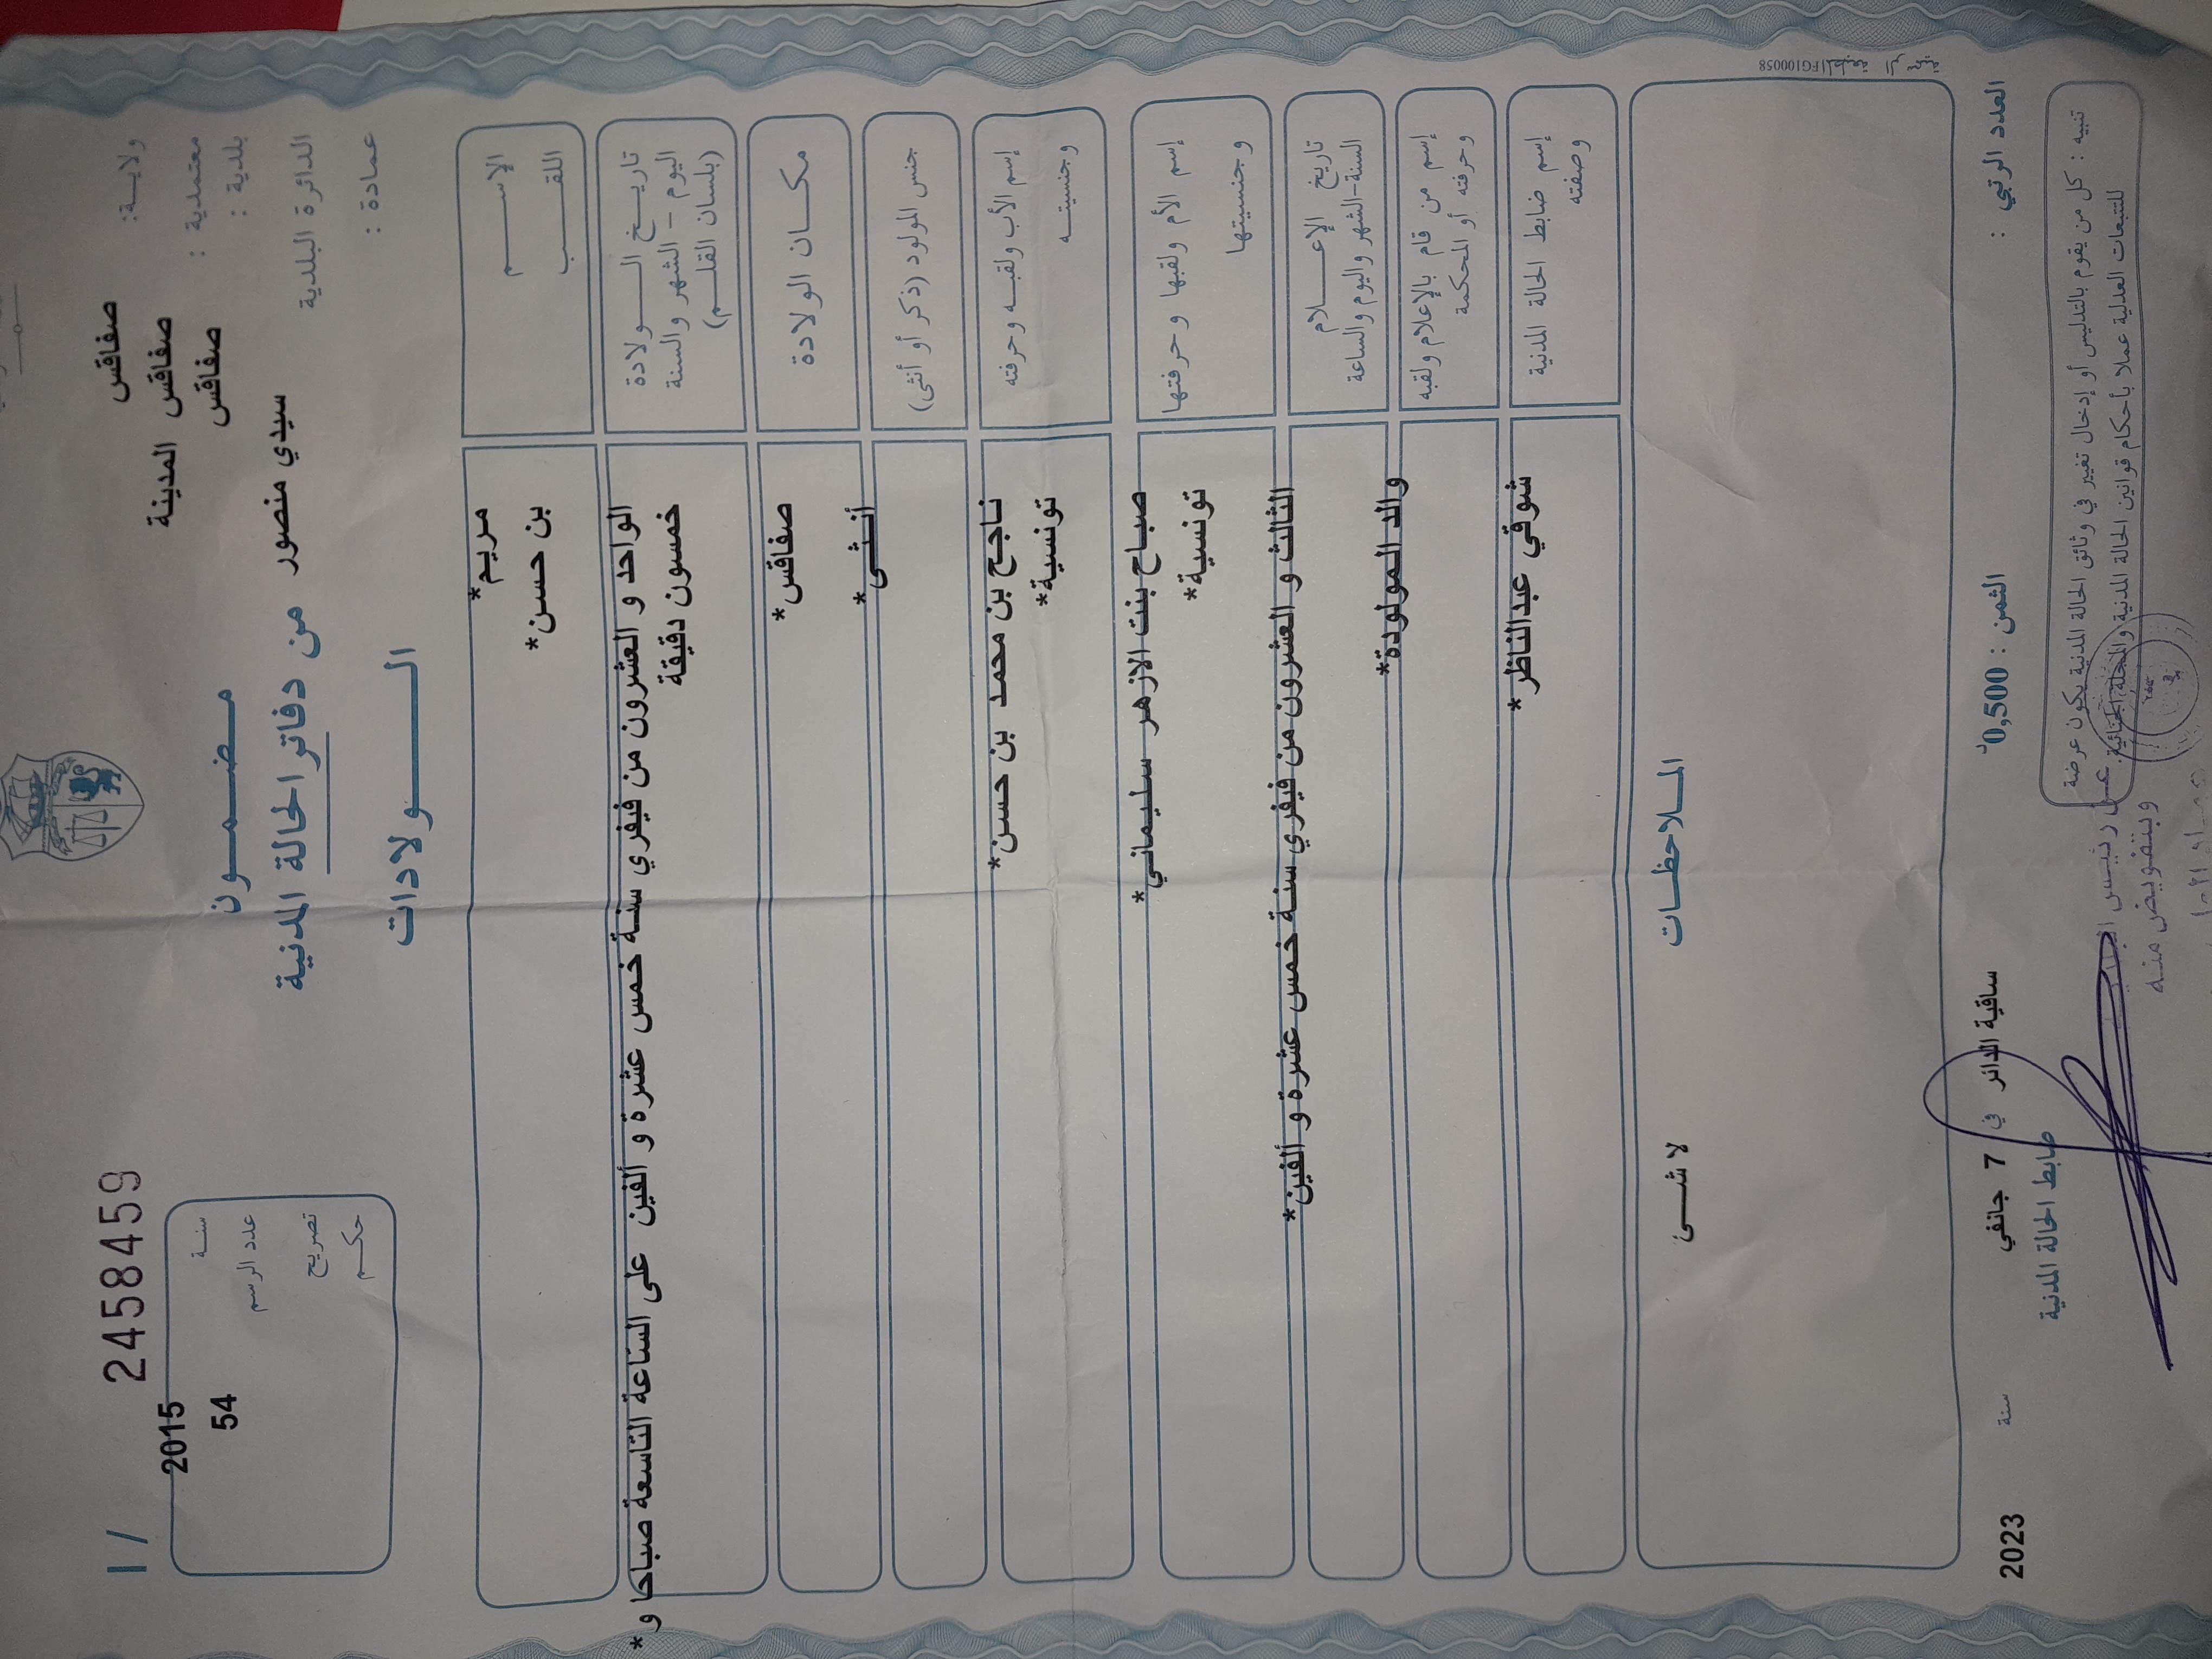 ا/ 2458459
ولاية: صفاقس
معتمدية : صفاقس المدينة
بلدية : صفاقس
الدائرة البلدية سيدي منصور
عمادة :
سنة 2015
عدد الرسم 54
تصريح
حكم
مضمون
من دفاتر الحالة المدنية
الولادات
الإسم مريم*
اللقب بن حسن*
تاريخ الولادة
اليوم - الشهر والسنة
(بلسان القلم)
الواحد و العشرون من فيفري سنة خمس عشرة و ألفين على الساعة التاسعة صباحا و*
خمسون دقيقة
مكان الولادة صفاقس*
جنس المولود (ذكر أو أنثى) أنثى*
إسم الأب ولقبه وحرفته ناجح بن محمد بن حسن*
وجنسيته تونسية*
إسم الأم ولقبها وحرفتها صباح بنت الازهر سليماني*
وجنسيتها تونسية*
تاريخ الإعلام
السنة-الشهر واليوم والساعة
الثالث و العشرون من فيفري سنة خمس عشرة و ألفين*
إسم من قام بالإعلام ولقبه
وحرفته أو المحكمة
والد المولودة*
إسم ضابط الحالة المدنية
وصفته
شوقي عبدالناظر*
الملاحظات
لا شئ
FG100058
العدد الرتبي :
الثمن : 0,500
ساقية الدائر في 7 جانفي سنة 2023
ضابط الحالة المدنية
تنبيه : كل من يقوم بالتدليس أو إدخال تغيير في وثائق الحالة المدنية يكون عرضة
للتتبعات العدلية عملا بأحكام قوانين الحالة المدنية والمجلة الجنائية.
عن رئيس
وبتفويض منه